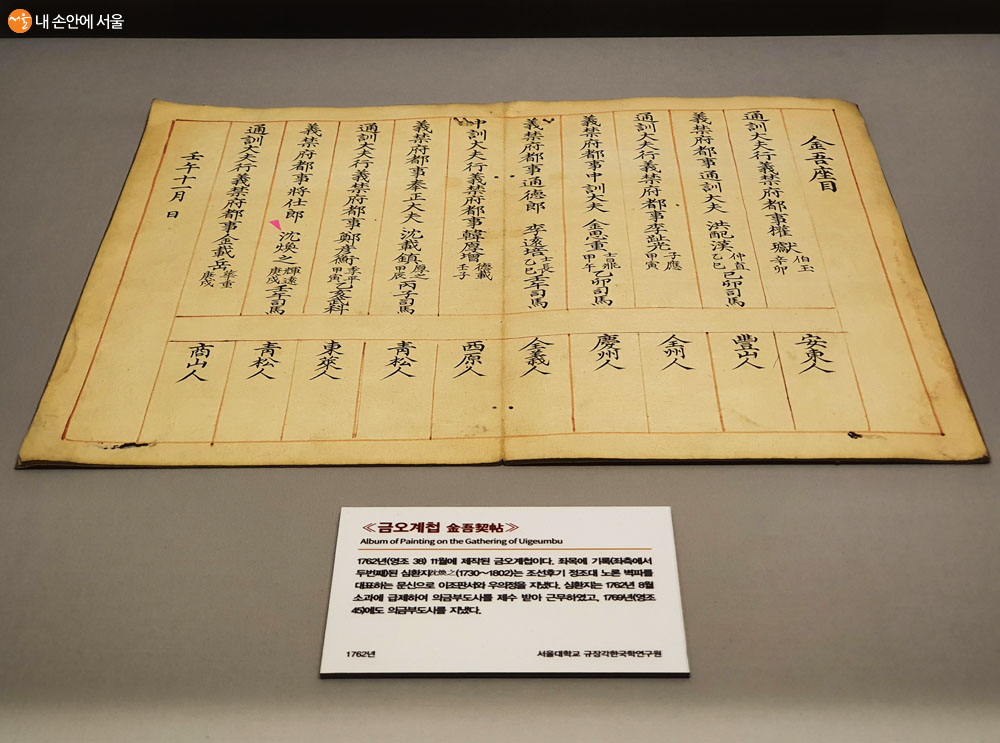 내 손안에 서울
金吾座目
通訓大夫行義禁府都事權 𤣰 伯玉 辛卯
義禁府都事通訓大夫 洪配漢 仲直 乙巳 己卯司馬
通訓大夫行義禁府都事李趾光 子應 甲寅
義禁府都事中訓大夫 金思重 士鼎 甲午 乙卯司馬
義禁府都事通德郎 李遠培 士長 乙巳 壬午司馬
中訓大夫行義禁府都事韓厚增 德載 壬子
義禁府都事奉正大夫 沈載鎮 厚之 甲辰 丙子司馬
通訓大夫行義禁府都事 鄭彦衡 季平 甲寅 乙亥武科
義禁府都事將仕郎 沈煥之 輝遠 庚戌 壬午司馬
通訓大夫行義禁府都事金載岳 華重 庚戌
壬午十一月 日
安東人
豐山人
全州人
慶州人
全義人
西原人
靑松人
東萊人
靑松人
商山人
≪금오계첩 金吾契帖≫
Album of Painting on the Gathering of Uigeumbu
1762년(영조 38) 11월에 제작된 금오계첩이다. 좌목에 기록(좌측에서
두번째)된 심환지沈煥之(1730~1802)는 조선후기 정조대 노론 벽파를
대표하는 문신으로 이조판서와 우의정을 지냈다. 심환지는 1762년 8월
소과에 급제하여 의금부도사를 제수 받아 근무하였고, 1769년(영조
45)에도 의금부도사를 지냈다.
1762년
서울대학교 규장각한국학연구원